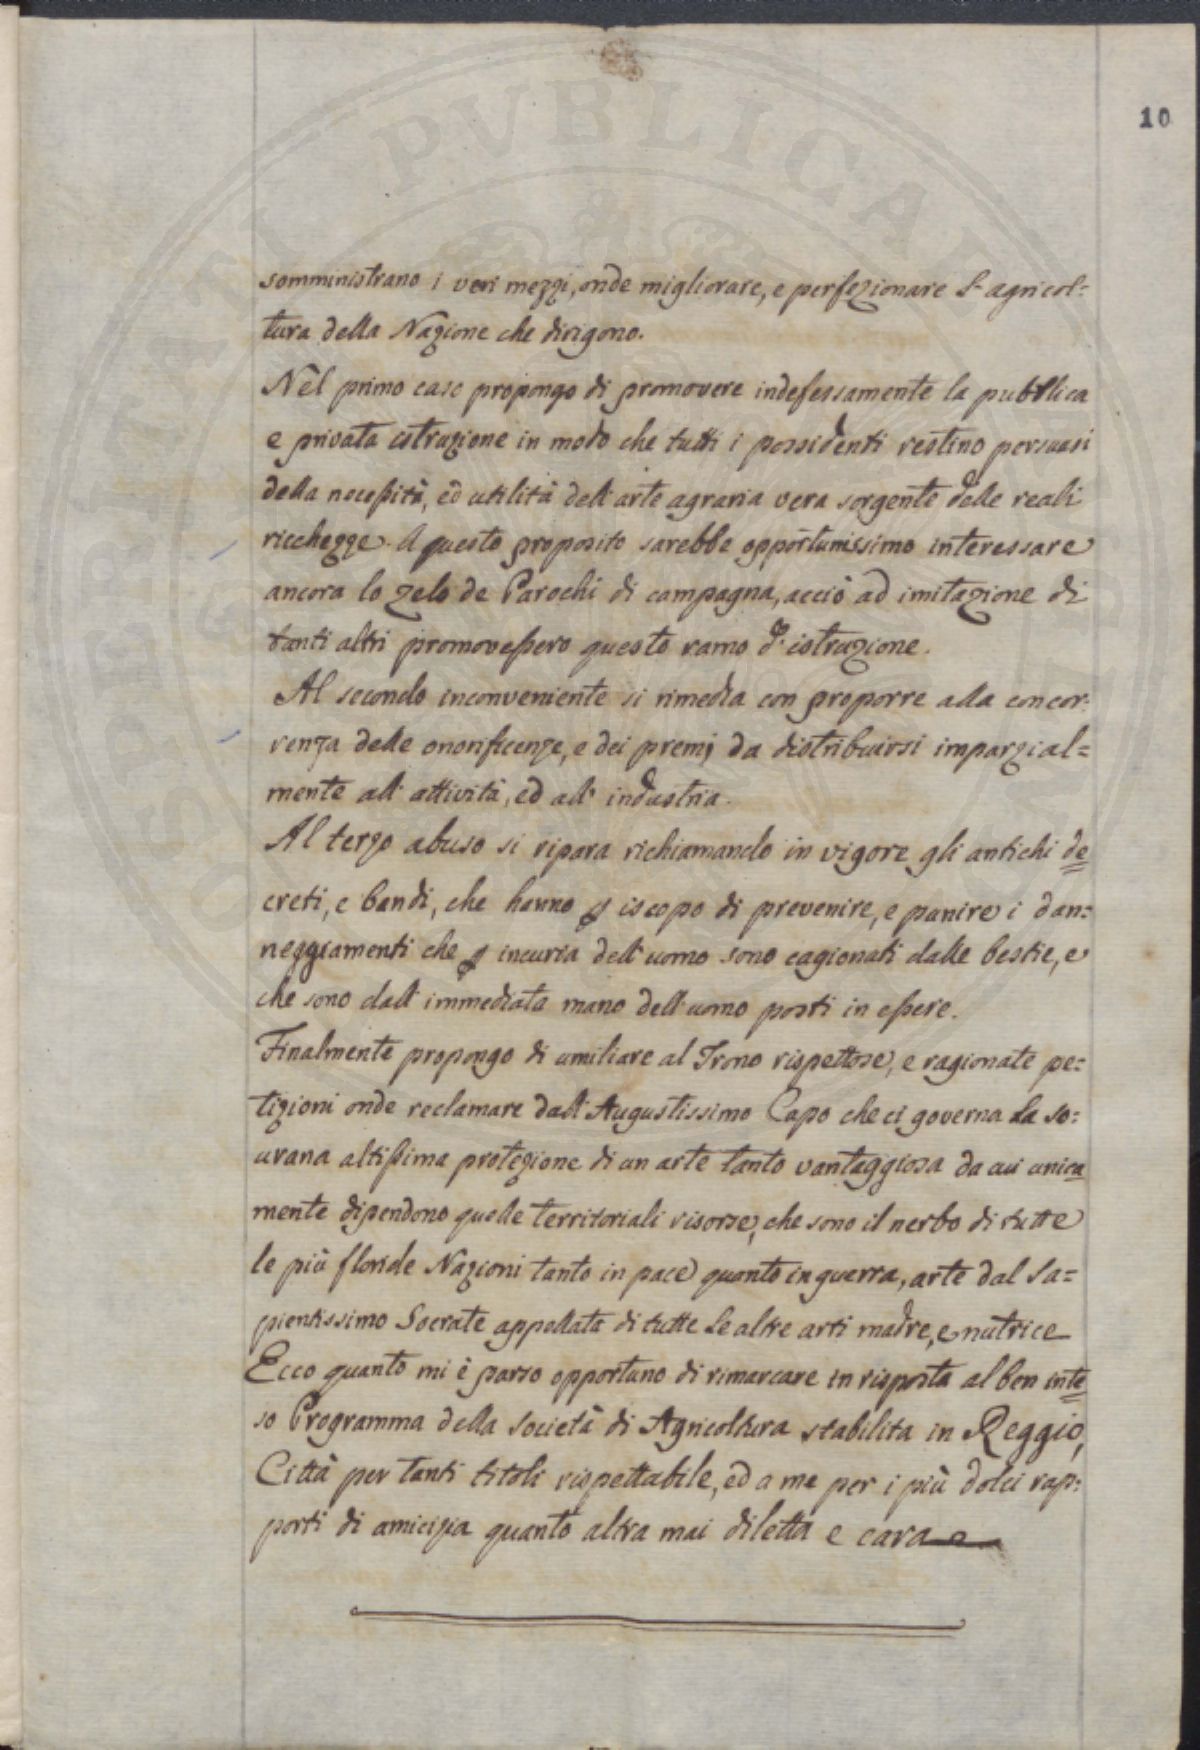 10
somministrano i veri mezzi, onde migliorare, e perfezionare l'agricol=
tura della Nazione che dirigono.
Nel primo caso propongo di promovere indefessamente la pubblica
e privata istruzione in modo che tutti i possidenti restino persuasi
della necessità, ed utilità dell'arte agraria vera sorgente delle reali
ricchezze. A questo proposito sarebbe opportunissimo interessare
ancora lo zelo de Parochi di campagna, acciò ad imitazione di
tanti altri promovessero questo ramo d'istruzione.
Al secondo inconveniente si rimedia con proporre alla concor=
renza delle onorificenze, e dei premj da distribuirsi imparzial=
mente all'attività, ed all'industria.
Al terzo abuso si ripara richiamando in vigore gli antichi de=
creti, e bandi, che hanno p iscopo di prevenire, e punire i dan=
neggiamenti che p incuria dell'uomo sono cagionati dalle bestie, e
che sono dall'immediata mano dell'uomo posti in essere.
Finalmente propongo di umiliare al Trono rispettose, e ragionate pe=
tizioni onde reclamare dall'Augustissimo Capo che ci governa la so=
vrana altissima protezione di un arte tanto vantaggiosa da cui unica
mente dipendono quelle territoriali risorse, che sono il nerbo di tutte
le più floride Nazioni tanto in pace quanto in guerra, arte dal Sa=
pientissimo Socrate appellata di tutte le altre arti madre, e nutrice
Ecco quanto mi è parso opportuno di rimarcare in risposta al ben inte=
so Programma della Società di Agricoltura stabilita in Reggio,
Città per tanti titoli rispettabile, ed a me per i più dolci rap=
porti di amicizia quanto altra mai diletta e cara